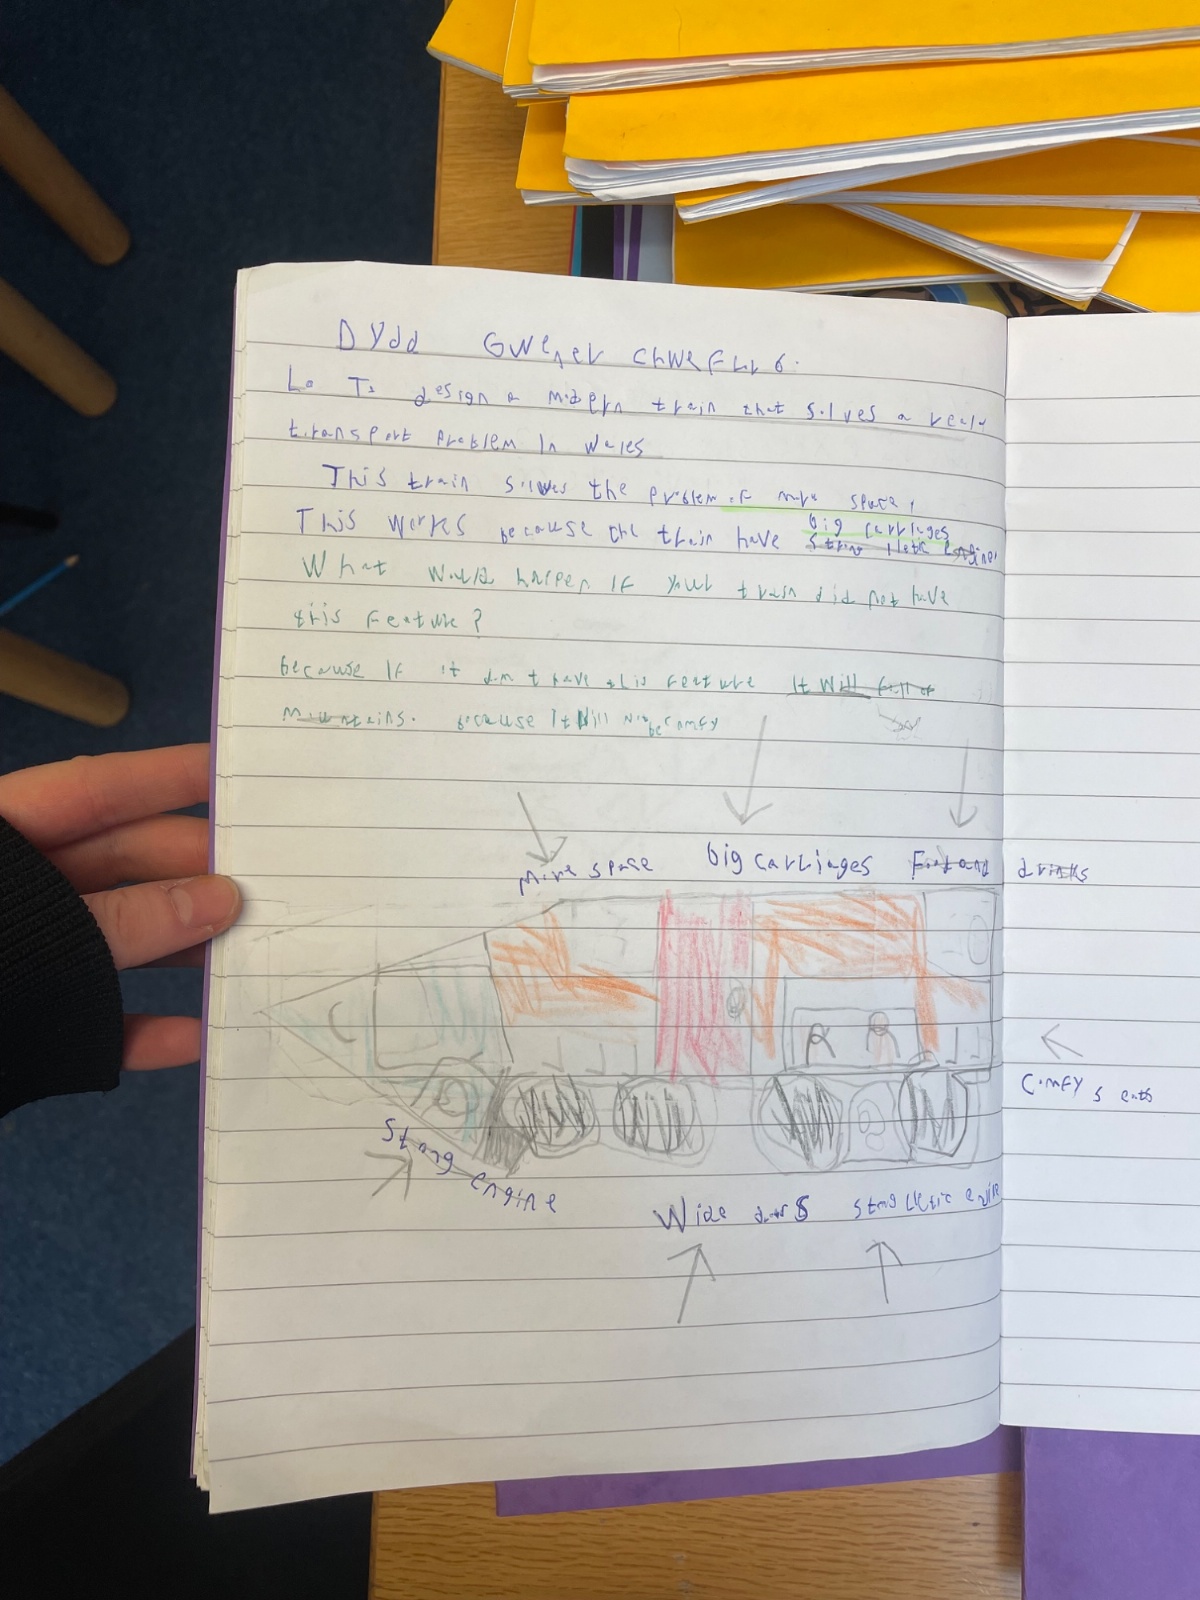 Dydd Gwener Chwefror 6.
Lo To design a modern train that solves a realy
transport problem In wales
This train solves the problem of more space.
big carriages
This works because the train have strong engine
What would happen If your train did not have
this Feature?
because If it dont have this Feature It Will fall of
Mountains. because It will not be comfy
More space big carriages Food and drinks
Comfy seats
Strong engine
Wide doors strong engine